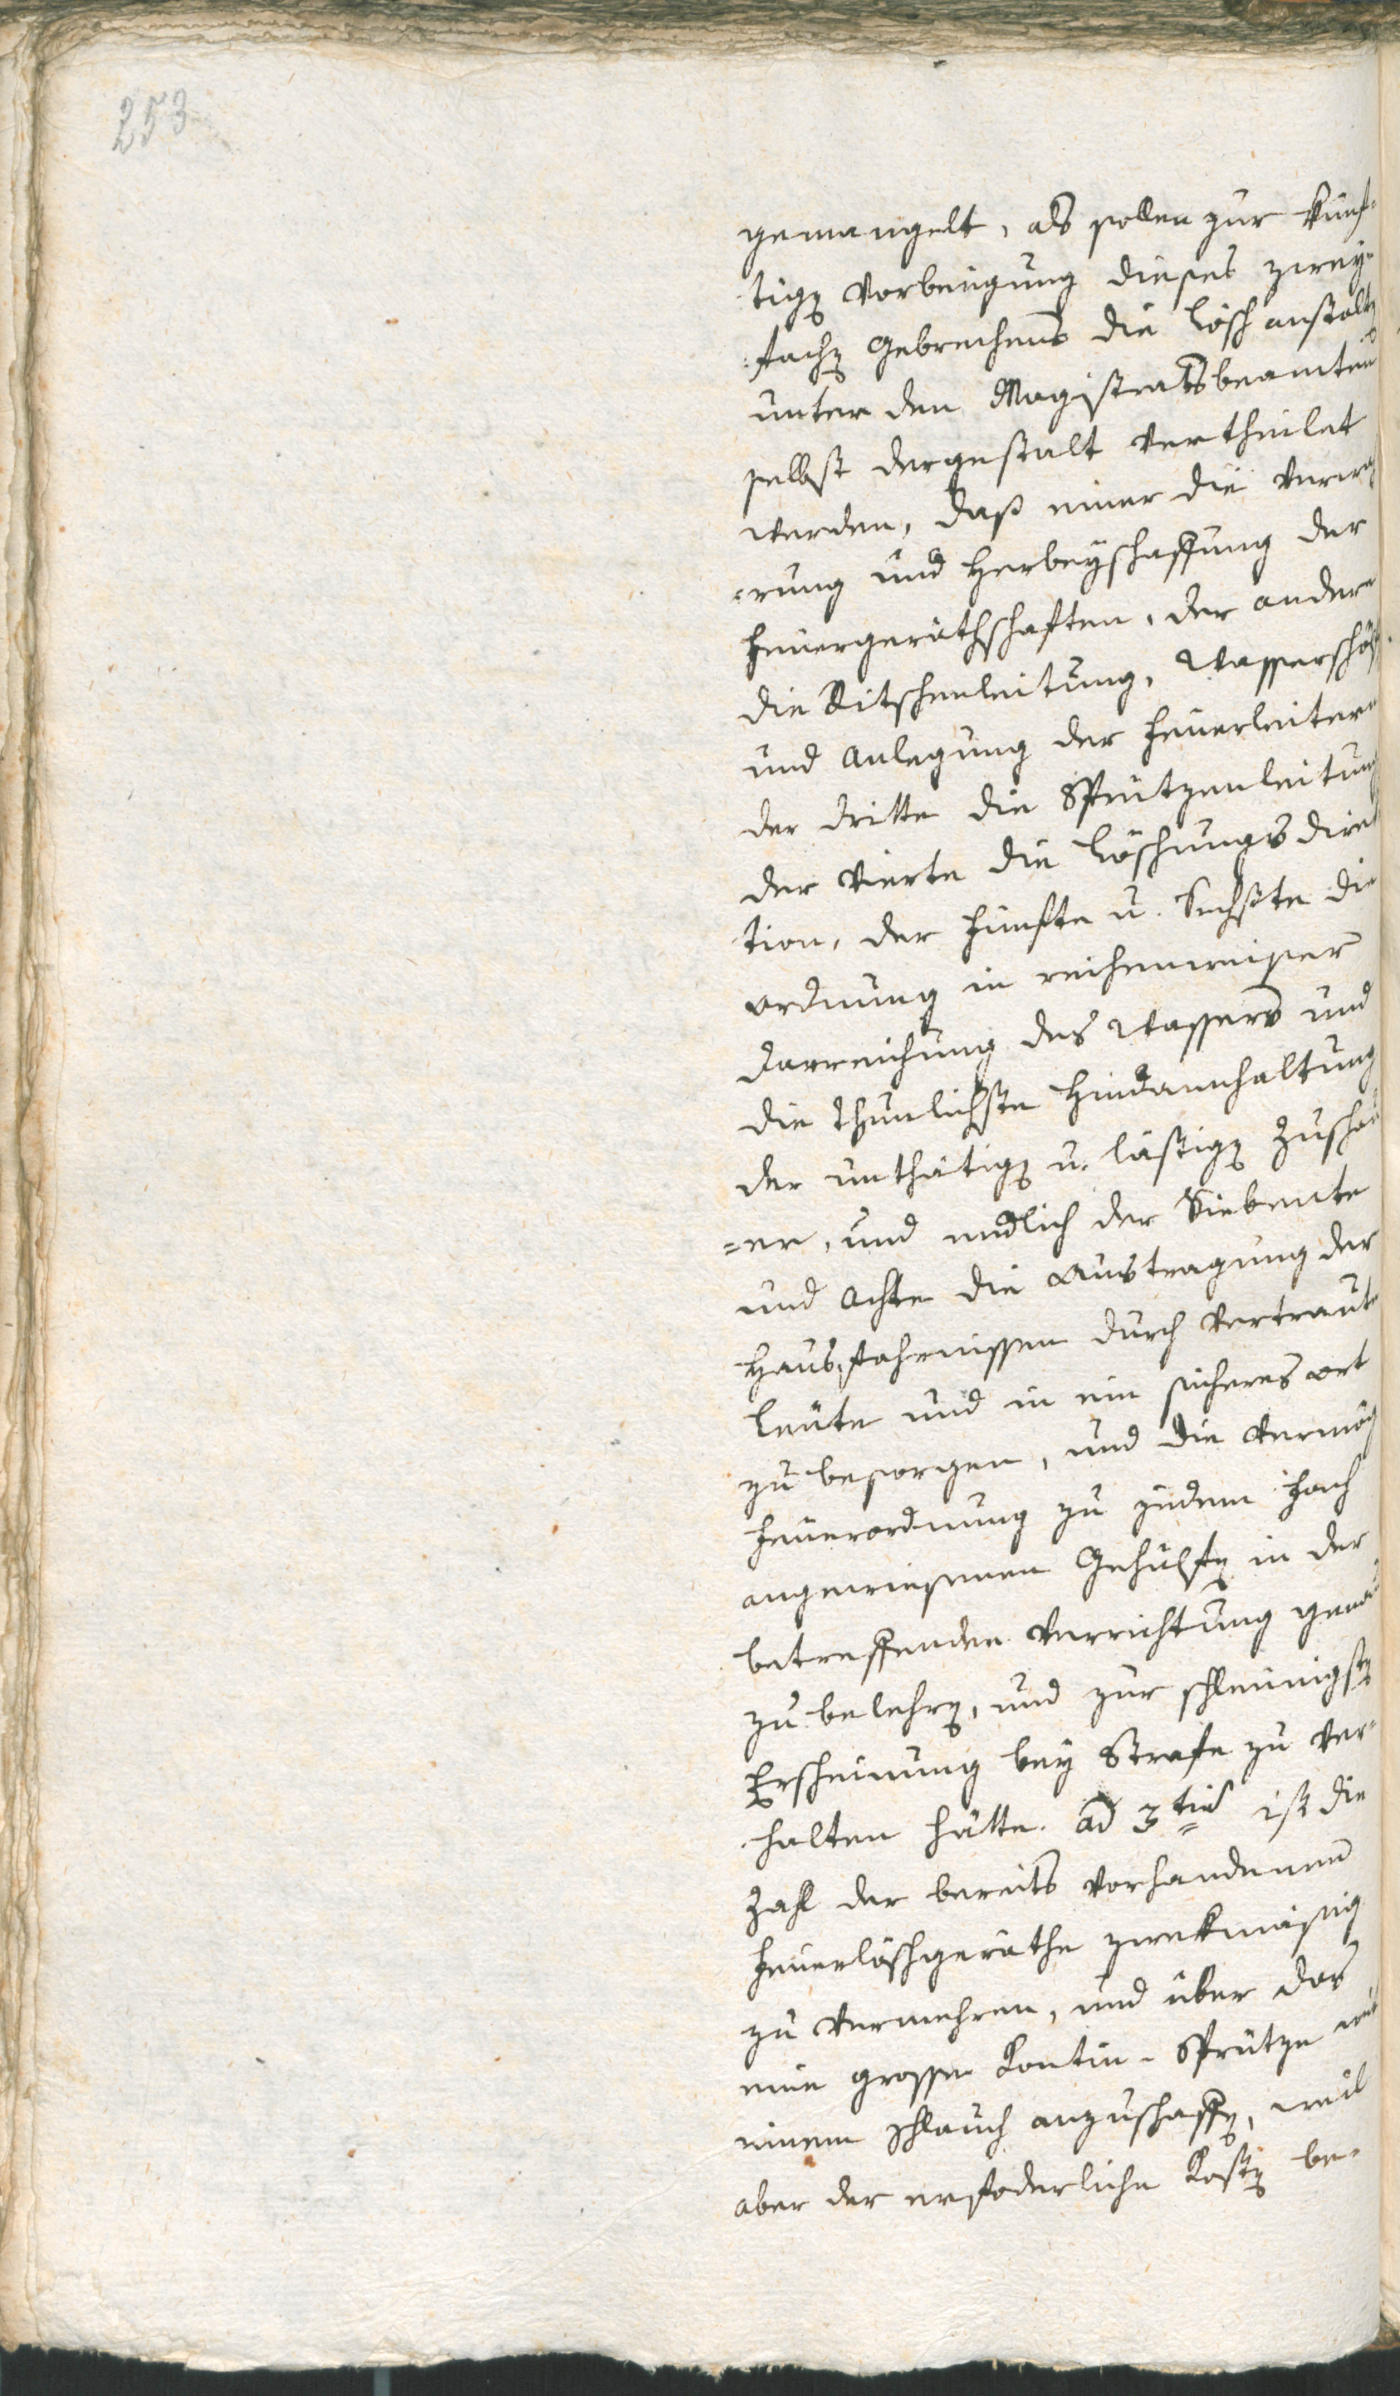 253
gemangelt, als sollen zur künf-
tigen Vorbeugung dieses zwey-
fachen Gebrechens die Löschanstalten
unter den Magistratsbeamten
selbst dergestalt vertheilet
werden, daß einer die
rung und Herbeyschaffung der
Feuergeräthschaften, der andere
die Ritschenleitung, Wasserschöpf
und Anlegung der Feuerleitern
der dritte die Sprützenleitung
der vierte die Löschungs direk
tion, der fünfte u. Sechste die
ordnung in reihenweiser
darreichung des Wassers und
die thunlichste Hindannhaltung
der unthätigen u. lästigen Zuschau
=er, und endlich der Siebente
und Achte die Austragung der
Hausfahrnissen durch vertraute
Leute und in ein sicheres ort
zu besorgen, und die vermög
Feuerordnung zu jedem Fach
angewiesenen Gehülfen in der
betreffenden Verrichtung genau
zu belehren, und zur schleunigsten
Erscheinung bey Strafe zu ver-
halten hätte. ad 3tio ist die
Zahl der bereits vorhandenen
Feuerlöschgeräthe zwekmäsig
zu vermehren, und über das
eine grosse Kontin-Sprütze mit
einem Schlauch anzuschaffen, weil
aber der erfoderliche Kosten be-